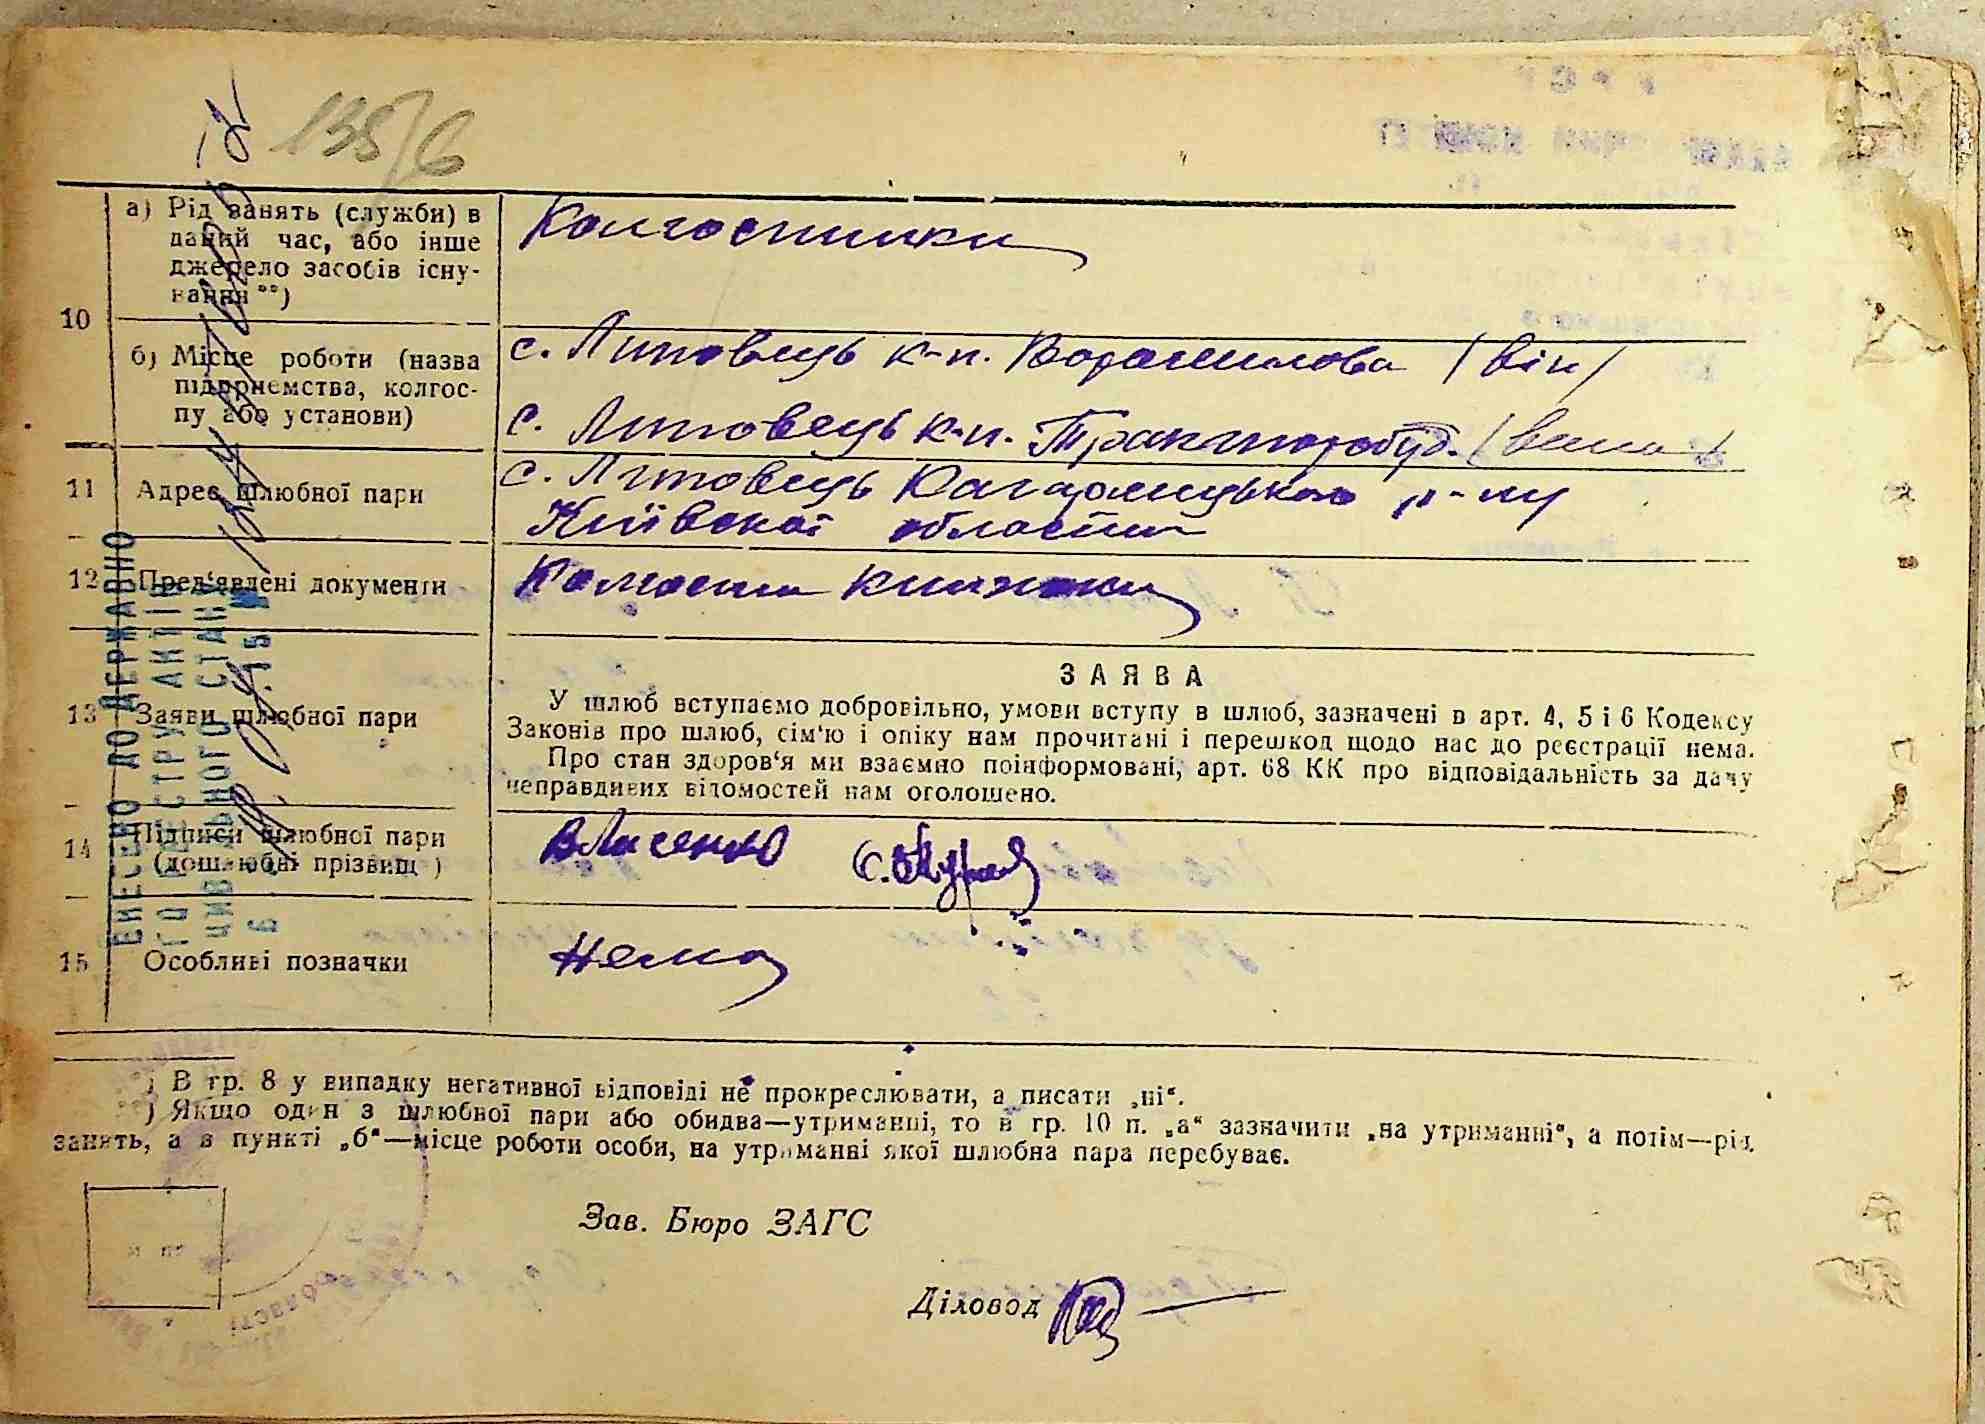 135/6
а) Рід занять (служби) в
даний час, або інше
джерело засобів існу-
вання **)
Колгоспники
10
б) Місце роботи (назва
підприємства, колгос-
пу або установи)
с. Липовець к-п. Ворошилова (він)
с. Липовець к-п. Тракторобуд. (вона)
11
Адрес шлюбної пари
с. Липовець Кагарлицького р-ну
Київської области
12
Пред'явлені документи
Колгоспні книжки
13
Заяви шлюбної пари
ЗАЯВА
У шлюб вступаємо добровільно, умови вступу в шлюб, зазначені в арт. 4, 5 і 6 Кодексу
Законів про шлюб, сім'ю і опіку нам прочитані і перешкод щодо нас до реєстрації нема.
Про стан здоров'я ми взаємно поінформовані, арт. 68 КК про відповідальність за дачу
неправдивих відомостей нам оголошено.
14
Підписи шлюбної пари
(дошлюбні прізвищ )
ВЛисенко
15
Особливі позначки
Нема
ВНЕСЕНО ДО ДЕРЖАВНО
ГО РЕЄСТРУ АКТІВ
ЦИВІЛЬНОГО СТАНУ
) В гр. 8 у випадку негативної відповіді не прокреслювати, а писати „ні“.
) Якщо один з шлюбної пари або обидва—утриманні, то в гр. 10 п. „а“ зазначити „на утриманні“, а потім—рід
занять, а в пункті „б“—місце роботи особи, на утриманні якої шлюбна пара перебуває.
Зав. Бюро ЗАГС
Діловод